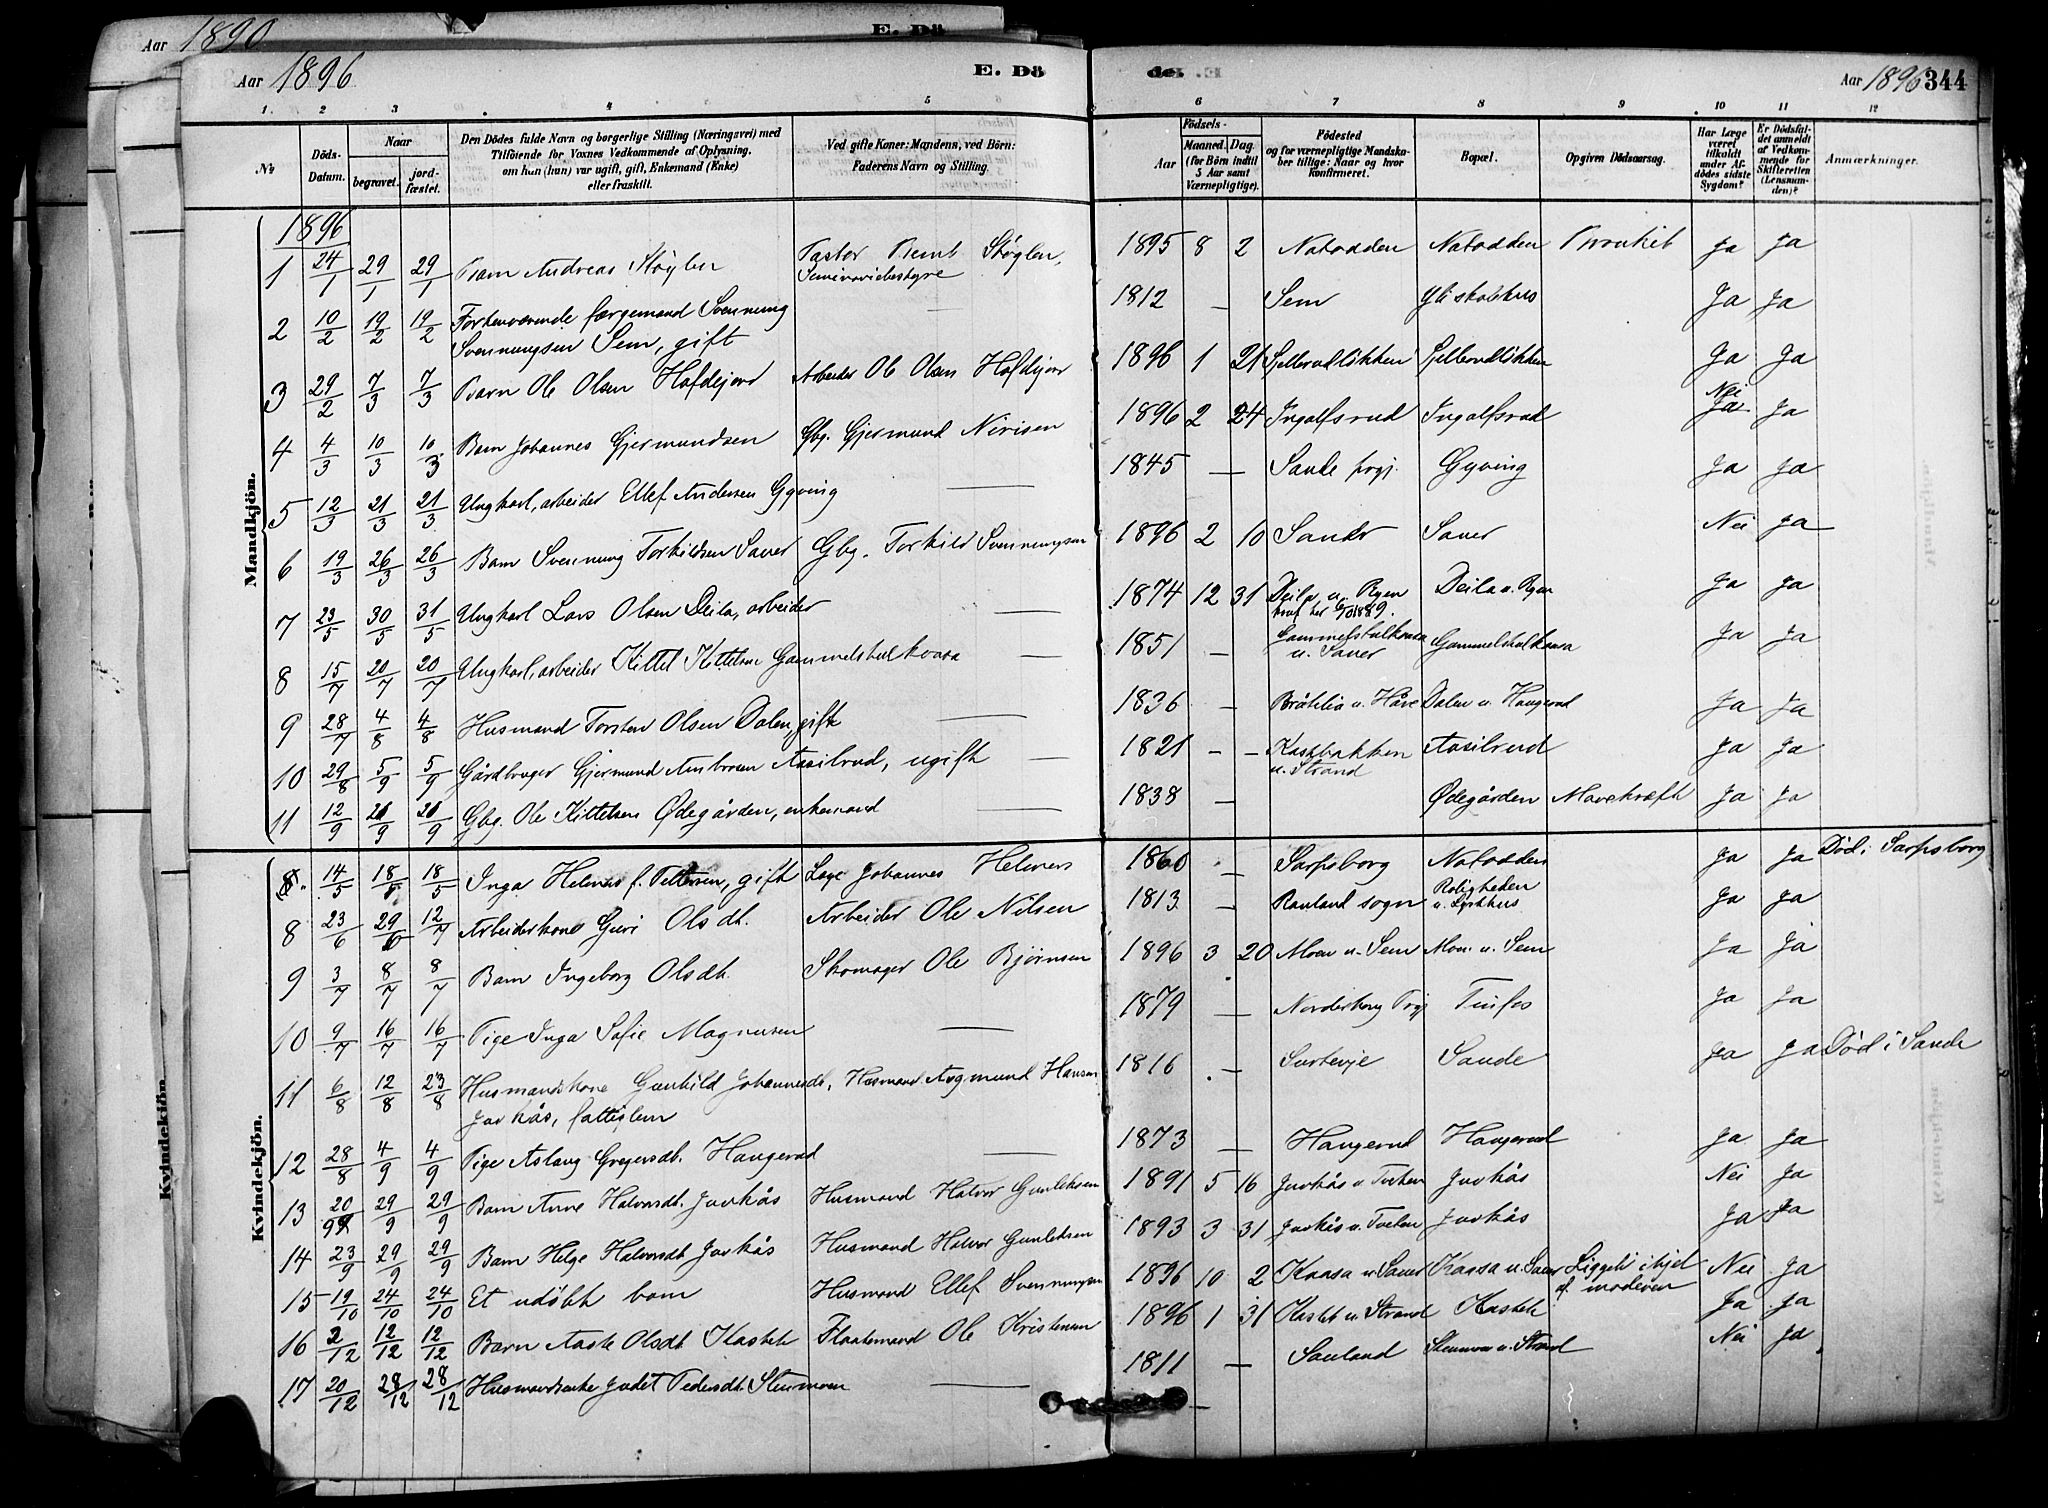 Aar 1890
E. Dö
Aar 1896
E. Dö
den
Aar 1896 344
1. 2 3 4 5
6 7 8 9 10 11 12
No
Döds-Datum.
Naar
begravet.
jord-fæstet.
Den Dödes fulde Navn og borgerlige Stilling (Næringsvei) med
Tilföiende for Voxnes Vedkommende af Oplysning,
om han (hun) var ugift, gift, Enkemand (Enke)
eller fraskilt.
Ved gifte Koner: Mandens, ved Börn:
Faderens Navn og Stilling.
Födsels-
Aar
Maaned. Dag.
(for Börn indtil
5 Aar samt
Værnepligtige).
Födested
og for værnepligtige Mandska-
ber tillige: Naar og hvor
konfirmeret.
Bopæl.
Opgiven Dödsaarsag.
Har Læge
været
tilkaldt
under Af-
dödes sidste
Sygdom?
Er Dödsfal-
det anmeldt
af Vedkom-
mende for
Skifteretten
(Lensman-
den)?
Anmærkninger.
Mandkjön.
1896
1 24/1 29/1 29/1 Barn Andreas Støylen Pastor Bernt Støylen, Seminariebestyrer 1895 8 2 Notodden Notodden Bronkit Ja Ja
2 10/2 19/2 19/2 Forhenværende færgemand Svenning
Svenningsen Sem, gift 1812 — Sem Ja Ja
3 29/2 7/3 7/3 Barn Ole Olsen Hafdejord Arbeider Ole Olsen Hafdejord 1896 1 21 Ja Ja
4 4/3 10/3 10/3 Barn Johannes Gjermundsen Gbg. Gjermund Nirisen 1896 2 24 Ingolfsrud Ingolfsrud Nei Ja Ja
5 12/3 21/3 21/3 Ungkarl, arbeider Ellef Andersen Gyving — 1845 — Sande prgj. Gyving Ja Ja
6 19/3 26/3 26/3 Barn Svenning Torkildsen Sauer Gbg. Torkild Svenningsen 1896 2 10 Sauer Nei Ja
7 23/5 30/5 31/5 Ungkarl Lars Olsen Deila, arbeider — 1874 12 31 Deila u. Ryen Deila u. Ryen Ja Ja
8 15/7 20/7 20/7 Ungkarl, arbeider Kittel Kittelsen Gammelstulkaasa — 1851 — Gammelstulkaasa
u. Sauer Gammelstulkaasa Ja Ja
9 28/7 4/8 4/8 Husmand Torsten Olsen Dalen, gift — 1836 — Bråtelia u. Håve Dalen u. Haugerud Ja Ja
10 29/8 5/9 5/9 Gårdbruger Gjermund Ambrosen Aasilrud, ugift — 1821 — — Kaasabakken
u. Strand Aasilrud Ja Ja
11 12/9 26/9 26/9 Gbg. Ole Kittelsen Ødegården, enkemand — 1838 — Ødegården Mavekræft Ja Ja
Kvindekjön.
8. 14/5 18/5 18/5 Inga Helmers f. Pettersen, gift Læge Johannes Helmers 1860 — Sarpsborg Notodden Ja Ja Død i Sarpsborg
8 23/6 29/6 12/7 Arbeiderkone Guri Olsdt. Arbeider Ole Nilsen 1813 — Rauland sogn Roligheden Ja Ja
9 3/7 8/7 8/7 Barn Ingeborg Olsdt. Skomager Ole Bjørnsen 1896 3 20 Moen u. Sem Moen u. Sem Ja Ja
10 9/7 16/7 16/7 Pige Inga Sofie Magnusen — 1879 — Tinfos Ja Ja
11 6/8 12/8 23/8 Husmandskone Gunhild Johannesdt. Husmand Augmund Hansen
Juvkås, fattiglem 1816 — Surtevje Sande Ja Ja Død i Sande
12 28/8 4/9 4/9 Pige Aslaug Gregersdt. Haugerud — 1873 — Haugerud Haugerud Ja Ja
13 20/9 29/9 29/9 Barn Anne Halvorsdt. Juvkås Husmand Halvor Gunleksen 1891 5 16 Juvkås u. Tveten Juvkås Nei Ja
14 23/9 29/9 29/9 Barn Helge Halvorsdt. Juvkås Husmand Halvor Gunleksen 1893 3 31 Juvkås u. Tveten Juvkås Ja Ja
15 19/10 24/10 24/10 Et udøbt barn Husmand Ellef Svenningsen 1896 10 2 Kaasa u. Sauer Kaasa u. Sauer Ligget ihjel
af moderen Nei Ja
16 2/12 12/12 12/12 Barn Aaste Olsdt. Kastet Flaatemand Ole Kristensen 1896 1 31 Kastet u. Strand Kastet Ja Ja
17 20/12 28/12 28/12 Husmandsenke Judet Pedersdt. Stenmoen — 1811 — Sauland Stenmoen u. Strand Nei Ja
Kvindekjön.